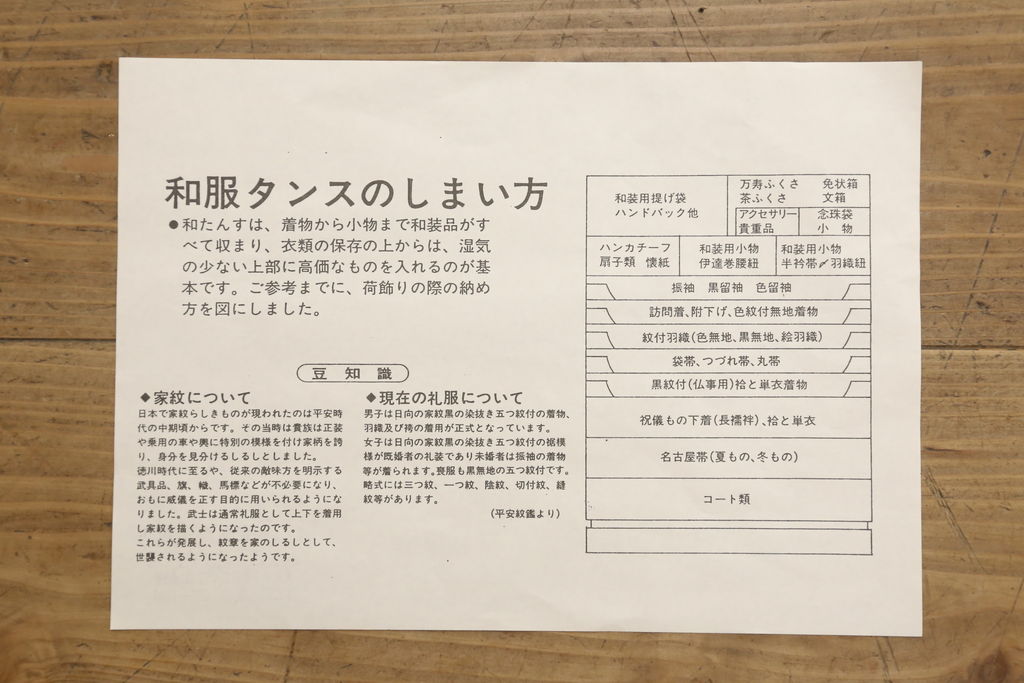 和服タンスのしまい方
●和たんすは、着物から小物まで和装品がす
べて収まり、衣類の保存の上からは、湿気
の少ない上部に高価なものを入れるのが基
本です。ご参考までに、荷飾りの際の納め
方を図にしました。
豆知識
◆家紋について
日本で家紋らしきものが現われたのは平安時
代の中期頃からです。その当時は貴族は正装
や乗用の車や輿に特別の模様を付け家柄を誇
り、身分を見分けるしるしとしました。
徳川時代に至るや、従来の敵味方を明示する
武具品、旗、幟、馬標などが不必要になり、
おもに威儀を正す目的に用いられるようにな
りました。武士は通常礼服として上下を着用
し家紋を描くようになったのです。
これらが発展し、紋章を家のしるしとして、
世襲されるようになったようです。
◆現在の礼服について
男子は日向の家紋黒の染抜き五つ紋付の着物、
羽織及び袴の着用が正式となっています。
女子は日向の家紋黒の染抜き五つ紋付の裾模
様が既婚者の礼装であり未婚者は振袖の着物
等が着られます。喪服も黒無地の五つ紋付です。
略式には三つ紋、一つ紋、陰紋、切付紋、縫
紋等があります。
(平安紋鑑より)
和装用提げ袋
ハンドバック他
万寿ふくさ 免状箱
茶ふくさ 文箱
アクセサリー
貴重品
念珠袋
小物
ハンカチーフ
扇子類 懐紙
和装用小物
伊達巻腰紐
和装用小物
半衿帯〆羽織紐
振袖 黒留袖 色留袖
訪問着、附下げ、色紋付無地着物
紋付羽織(色無地、黒無地、絵羽織)
袋帯、つづれ帯、丸帯
黒紋付(仏事用)袷と単衣着物
祝儀もの下着(長襦袢)、袷と単衣
名古屋帯(夏もの、冬もの)
コート類